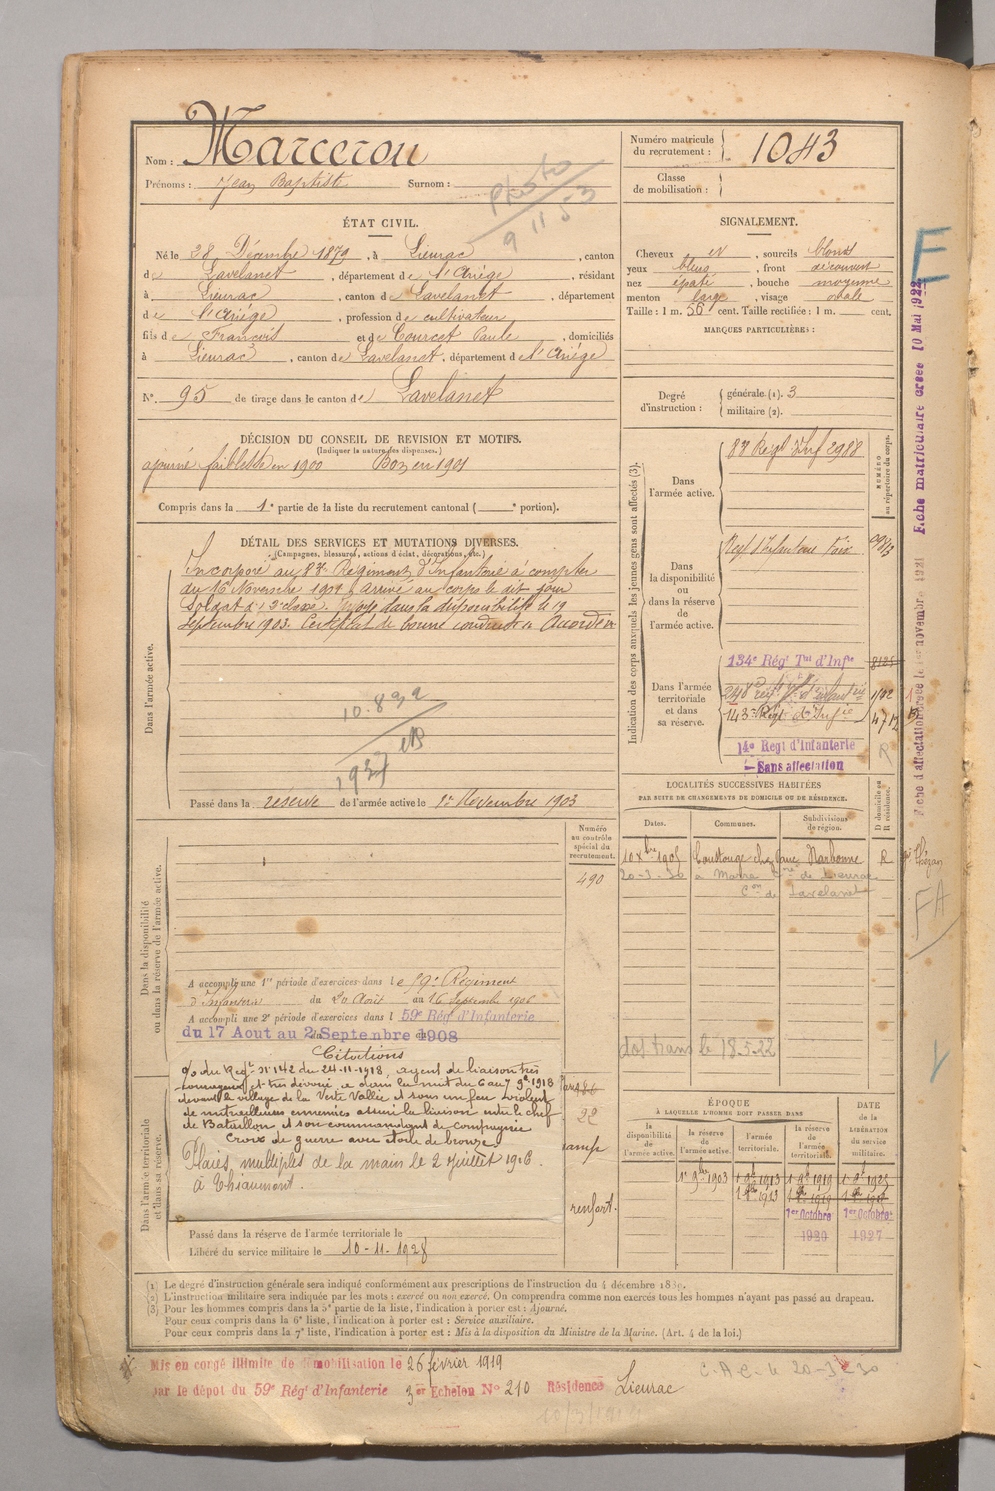 Nom : Marcerou
Prénoms : Jean Baptiste Surnom :
Photo
9 11 53
Numéro matricule du recrutement : 1043
Classe de mobilisation :
ÉTAT CIVIL.
Né le 28 Décembre 1879, à Lieurac, canton
de Lavelanet, département de l'Ariège, résidant
à Lieurac, canton de Lavelanet, département
de l'Ariège, profession de cultivateur
fils de François et de Courcet Paule, domiciliés
à Lieurac, canton de Lavelanet, département de l'Ariège
N° 95 de tirage dans le canton de Lavelanet
SIGNALEMENT.
Cheveux et, sourcils blonds
yeux bleus, front découvert
nez épaté, bouche moyenne
menton large, visage ovale
Taille : 1 m. 56 cent. Taille rectifiée : 1 m. cent.
MARQUES PARTICULIÈRES :
Degré d'instruction : générale (1). 3
militaire (2).
DÉCISION DU CONSEIL DE REVISION ET MOTIFS.
(Indiquer la nature des dispenses.)
ajourné faiblesse en 1900 Bon en 1901
Compris dans la 1e partie de la liste du recrutement cantonal ( e portion).
DÉTAIL DES SERVICES ET MUTATIONS DIVERSES.
(Campagnes, blessures, actions d'éclat, décorations, etc.)
Dans l'armée active.
Incorporé au Régiment d'Infanterie à compter
du 16 Novembre 1901, arrivé au corps le dit jour
Soldat de 2e classe. Envoyé dans la disponibilité le 19
Septembre 1903. Certificat de bonne conduite Accordé
10.832
1937
Passé dans la réserve de l'armée active le 1er Novembre 1903
Indication des corps auxquels les jeunes gens sont affectés (3).
NUMÉRO au répertoire du corps.
Dans l'armée active.
Regt d'Inf 2988
Dans la disponibilité ou dans la réserve de l'armée active.
Regt d'Infanterie Foix
Dans l'armée territoriale et dans sa réserve.
134e Régt Tal d'Infie
143e Régt d'Infie
14e Regt d'Infanterie
Sans affectation
LOCALITÉS SUCCESSIVES HABITÉES
PAR SUITE DE CHANGEMENTS DE DOMICILE OU DE RÉSIDENCE.
Dates. Communes. Subdivisions de région. D domicile ou R résidence.
10 Xbre 1905 Narbonne R
20-3-30 à cne de Lieurac
Con de Lavelanet
18.5.22
Dans la disponibilité ou dans la réserve de l'armée active.
Numéro au contrôle spécial du recrutement.
490
A accompli une 1re période d'exercices dans le 59e Régiment
d'Infanterie du 20 Août au 16 Septembre 1906
A accompli une 2e période d'exercices dans l 59e Rég. d'Infanterie
du 17 Aout au 2 Septembre 1908
Dans l'armée territoriale et dans sa réserve.
Citations
O/ du Regt N° 142 du 24-11-1918, agent de liaison très
courageux et très dévoué, a dans la nuit du 6 au 7 9bre 1918
devant le village de la Verte Vallée et sous un feu violent
de mitrailleuses ennemies assuré la liaison entre le chef
de Bataillon et son commandant de compagnie
Croix de guerre avec étoile de bronze.
Plaies multiples de la main le 2 juillet 1916
à Thiaumont.
22
renfort.
Passé dans la réserve de l'armée territoriale le
Libéré du service militaire le 10-11-1928
ÉPOQUE
À LAQUELLE L'HOMME DOIT PASSER DANS
la disponibilité de l'armée active.
la réserve de l'armée active.
l'armée territoriale.
la réserve de l'armée territoriale.
DATE de la LIBÉRATION du service militaire.
1er 9bre 1903 1er 9bre 1913 1er 9bre 1919
1er Octobre 1920
1er Octobre 1927
(1) Le degré d'instruction générale sera indiqué conformément aux prescriptions de l'instruction du 4 décembre 1889.
(2) L'instruction militaire sera indiquée par les mots : exercé ou non exercé. On comprendra comme non exercés tous les hommes n'ayant pas passé au drapeau.
(3) Pour les hommes compris dans la 5e partie de la liste, l'indication à porter est : Ajourné.
Pour ceux compris dans la 6e liste, l'indication à porter est : Service auxiliaire.
Pour ceux compris dans la 7e liste, l'indication à porter est : Mis à la disposition du Ministre de la Marine. (Art. 4 de la loi.)
Mis en congé illimité de démobilisation le 26 février 1919
par le dépôt du 59e Rég d'Infanterie 3er Echelon N° 210 Résidence Lieurac
C.A.C. le 20-3-30
E
Fiche matriculaire créée 10 Mai 1922
Fiche d'affectation créée le 1er novembre 1921
FA